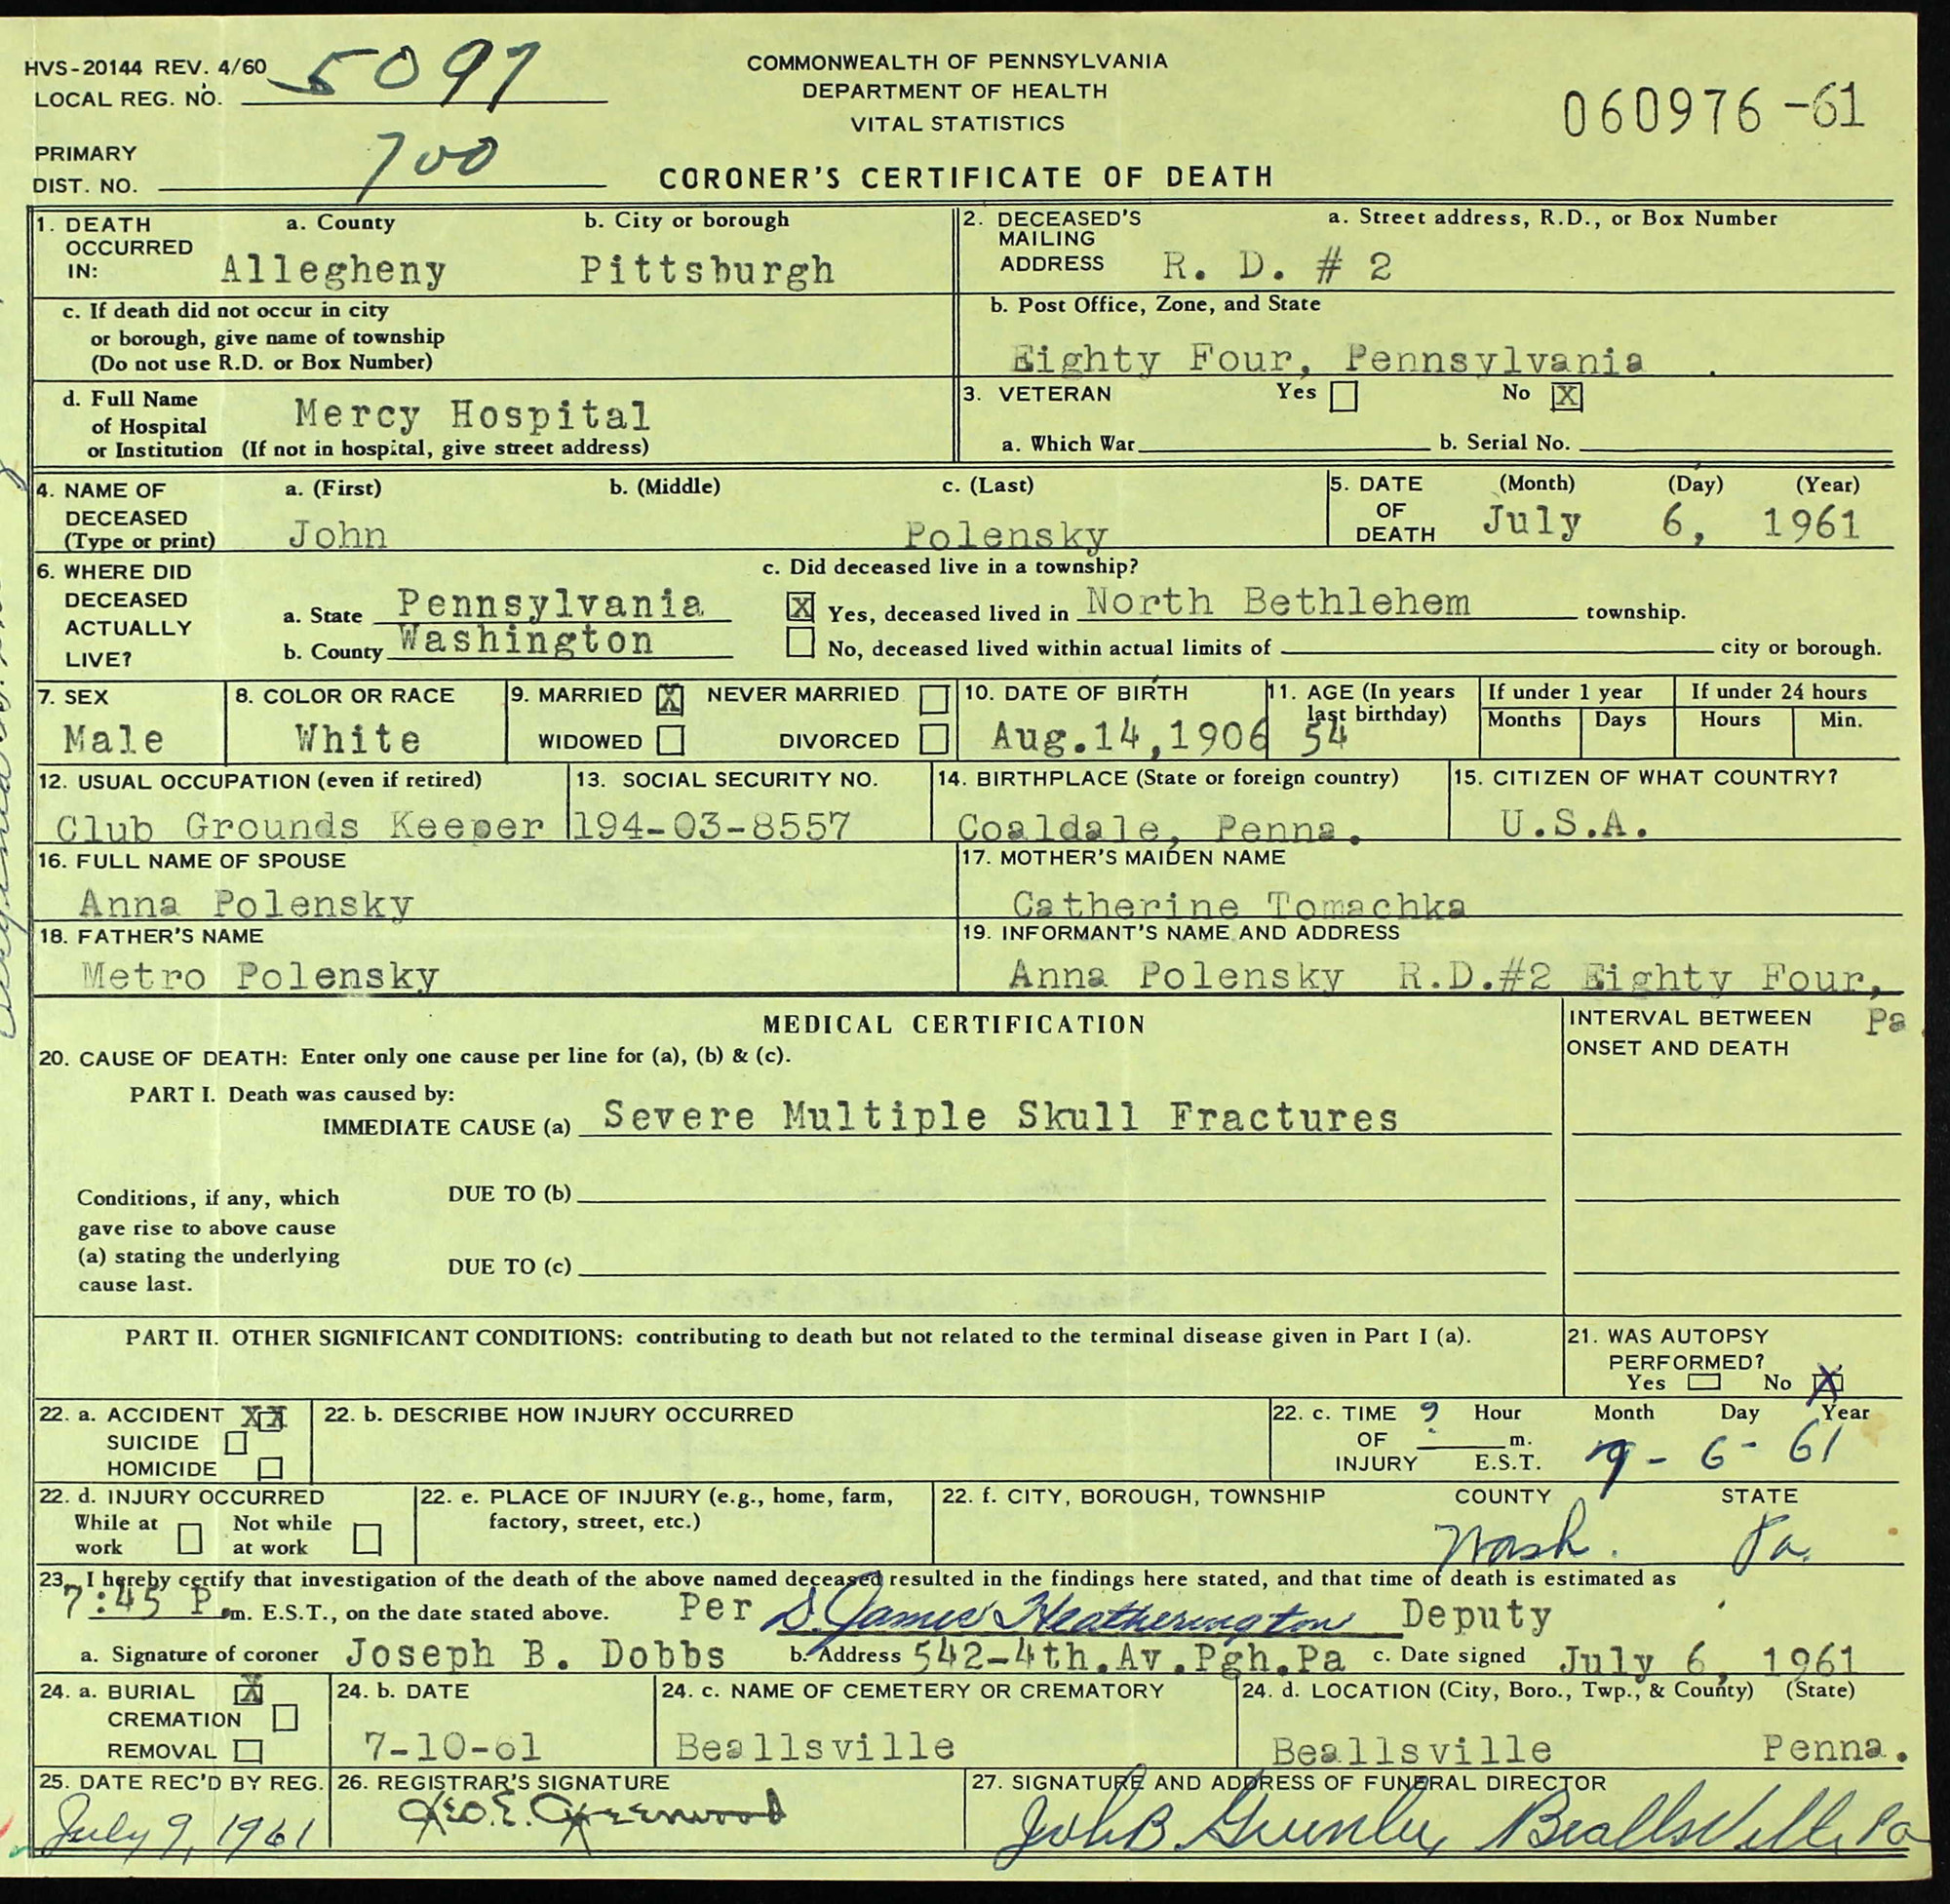 HVS-20144 REV. 4/60
LOCAL REG. NO. 5097
COMMONWEALTH OF PENNSYLVANIA
DEPARTMENT OF HEALTH
VITAL STATISTICS
060976-61
PRIMARY
DIST. NO. 700
CORONER'S CERTIFICATE OF DEATH
1. DEATH OCCURRED IN:
a. County
Allegheny
b. City or borough
Pittsburgh
2. DECEASED'S MAILING ADDRESS
a. Street address, R.D., or Box Number
R. D. # 2
c. If death did not occur in city
or borough, give name of township
(Do not use R.D. or Box Number)
b. Post Office, Zone, and State
Eighty Four, Pennsylvania
d. Full Name
of Hospital
or Institution (If not in hospital, give street address)
Mercy Hospital
3. VETERAN Yes No X
a. Which War b. Serial No.
4. NAME OF DECEASED (Type or print)
a. (First) b. (Middle) c. (Last)
John Polensky
5. DATE OF DEATH (Month) (Day) (Year)
July 6, 1961
6. WHERE DID DECEASED ACTUALLY LIVE?
a. State Pennsylvania
b. County Washington
c. Did deceased live in a township?
X Yes, deceased lived in North Bethlehem township.
No, deceased lived within actual limits of city or borough.
7. SEX
Male
8. COLOR OR RACE
White
9. MARRIED X NEVER MARRIED
WIDOWED DIVORCED
10. DATE OF BIRTH
Aug.14,1906
11. AGE (In years last birthday)
54
If under 1 year
Months Days
If under 24 hours
Hours Min.
12. USUAL OCCUPATION (even if retired)
Club Grounds Keeper
13. SOCIAL SECURITY NO.
194-03-8557
14. BIRTHPLACE (State or foreign country)
Coaldale, Penna.
15. CITIZEN OF WHAT COUNTRY?
U.S.A.
16. FULL NAME OF SPOUSE
Anna Polensky
17. MOTHER'S MAIDEN NAME
Catherine Tomachka
18. FATHER'S NAME
Metro Polensky
19. INFORMANT'S NAME AND ADDRESS
Anna Polensky R.D.#2 Eighty Four,
Pa
MEDICAL CERTIFICATION
INTERVAL BETWEEN
ONSET AND DEATH
20. CAUSE OF DEATH: Enter only one cause per line for (a), (b) & (c).
PART I. Death was caused by:
IMMEDIATE CAUSE (a) Severe Multiple Skull Fractures
Conditions, if any, which
gave rise to above cause
(a) stating the underlying
cause last.
DUE TO (b)
DUE TO (c)
PART II. OTHER SIGNIFICANT CONDITIONS: contributing to death but not related to the terminal disease given in Part I (a).
21. WAS AUTOPSY
PERFORMED?
Yes No X
22. a. ACCIDENT XX
SUICIDE
HOMICIDE
22. b. DESCRIBE HOW INJURY OCCURRED
22. c. TIME OF INJURY ? Hour m. E.S.T. Month Day Year
7-6-61
22. d. INJURY OCCURRED
While at work Not while at work
22. e. PLACE OF INJURY (e.g., home, farm,
factory, street, etc.)
22. f. CITY, BOROUGH, TOWNSHIP COUNTY STATE
Wash. Pa.
23. I hereby certify that investigation of the death of the above named deceased resulted in the findings here stated, and that time of death is estimated as
7:45 P.m. E.S.T., on the date stated above. Per S. James Heatherington Deputy
a. Signature of coroner Joseph B. Dobbs b. Address 542-4th.Av.Pgh.Pa c. Date signed July 6, 1961
24. a. BURIAL X
CREMATION
REMOVAL
24. b. DATE
7-10-61
24. c. NAME OF CEMETERY OR CREMATORY
Beallsville
24. d. LOCATION (City, Boro., Twp., & County) (State)
Beallsville Penna.
25. DATE REC'D BY REG.
July 9, 1961
26. REGISTRAR'S SIGNATURE
Geo. E. Greenwood
27. SIGNATURE AND ADDRESS OF FUNERAL DIRECTOR
John B Beallsville, Pa